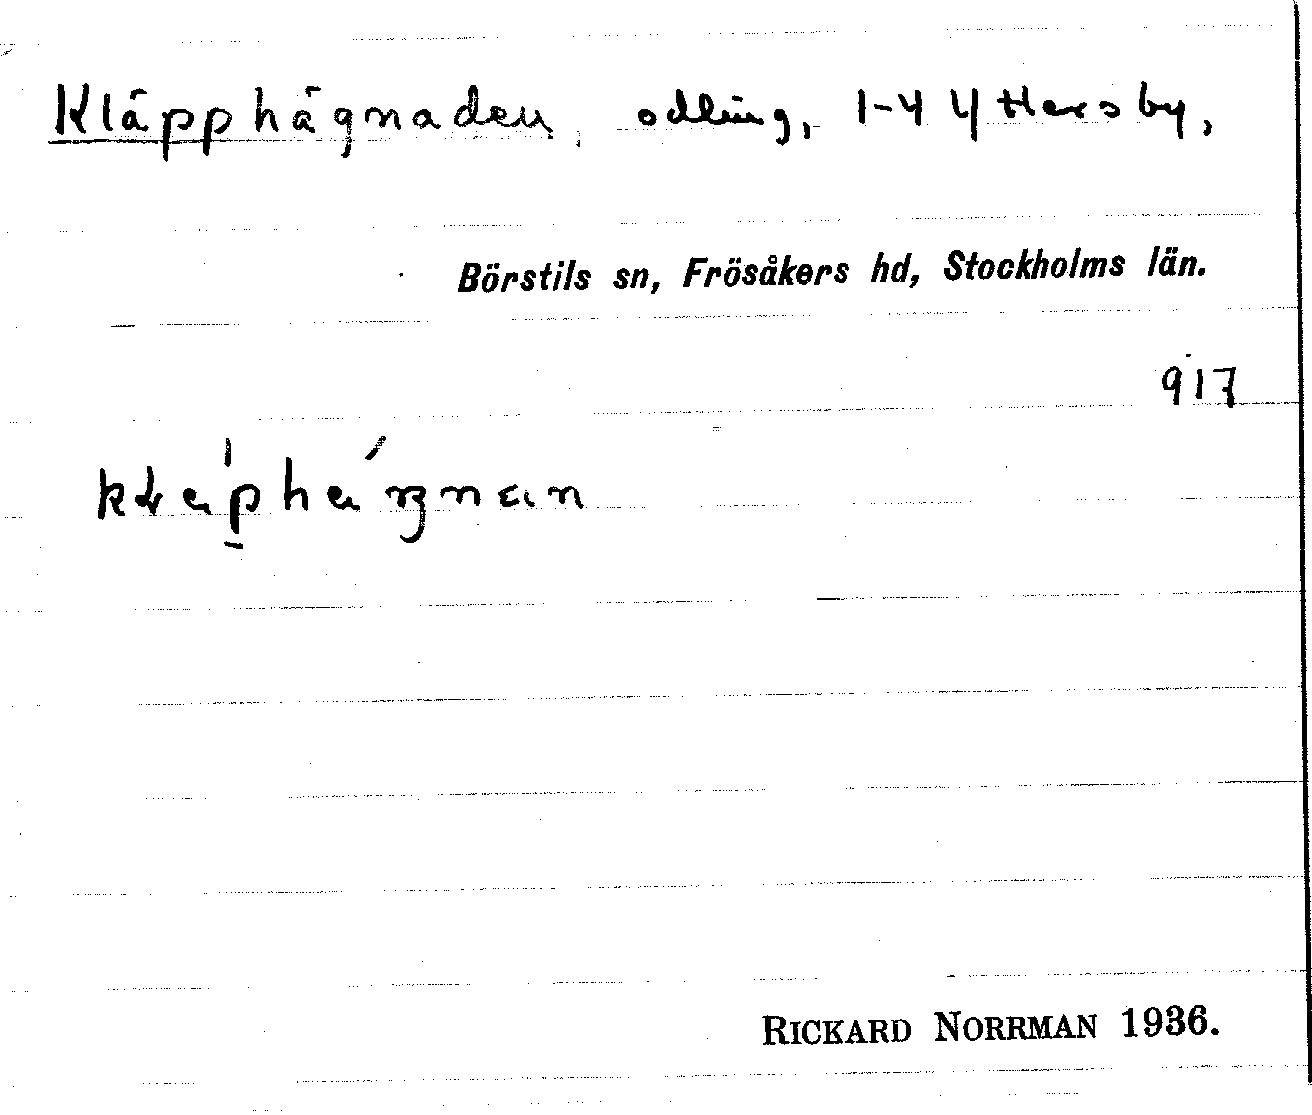 Kläpphägnaden, odling, 1-4 Hersby,
Börstils sn, Frösåkers hd, Stockholms län.
917
RICKARD NORRMAN 1936.